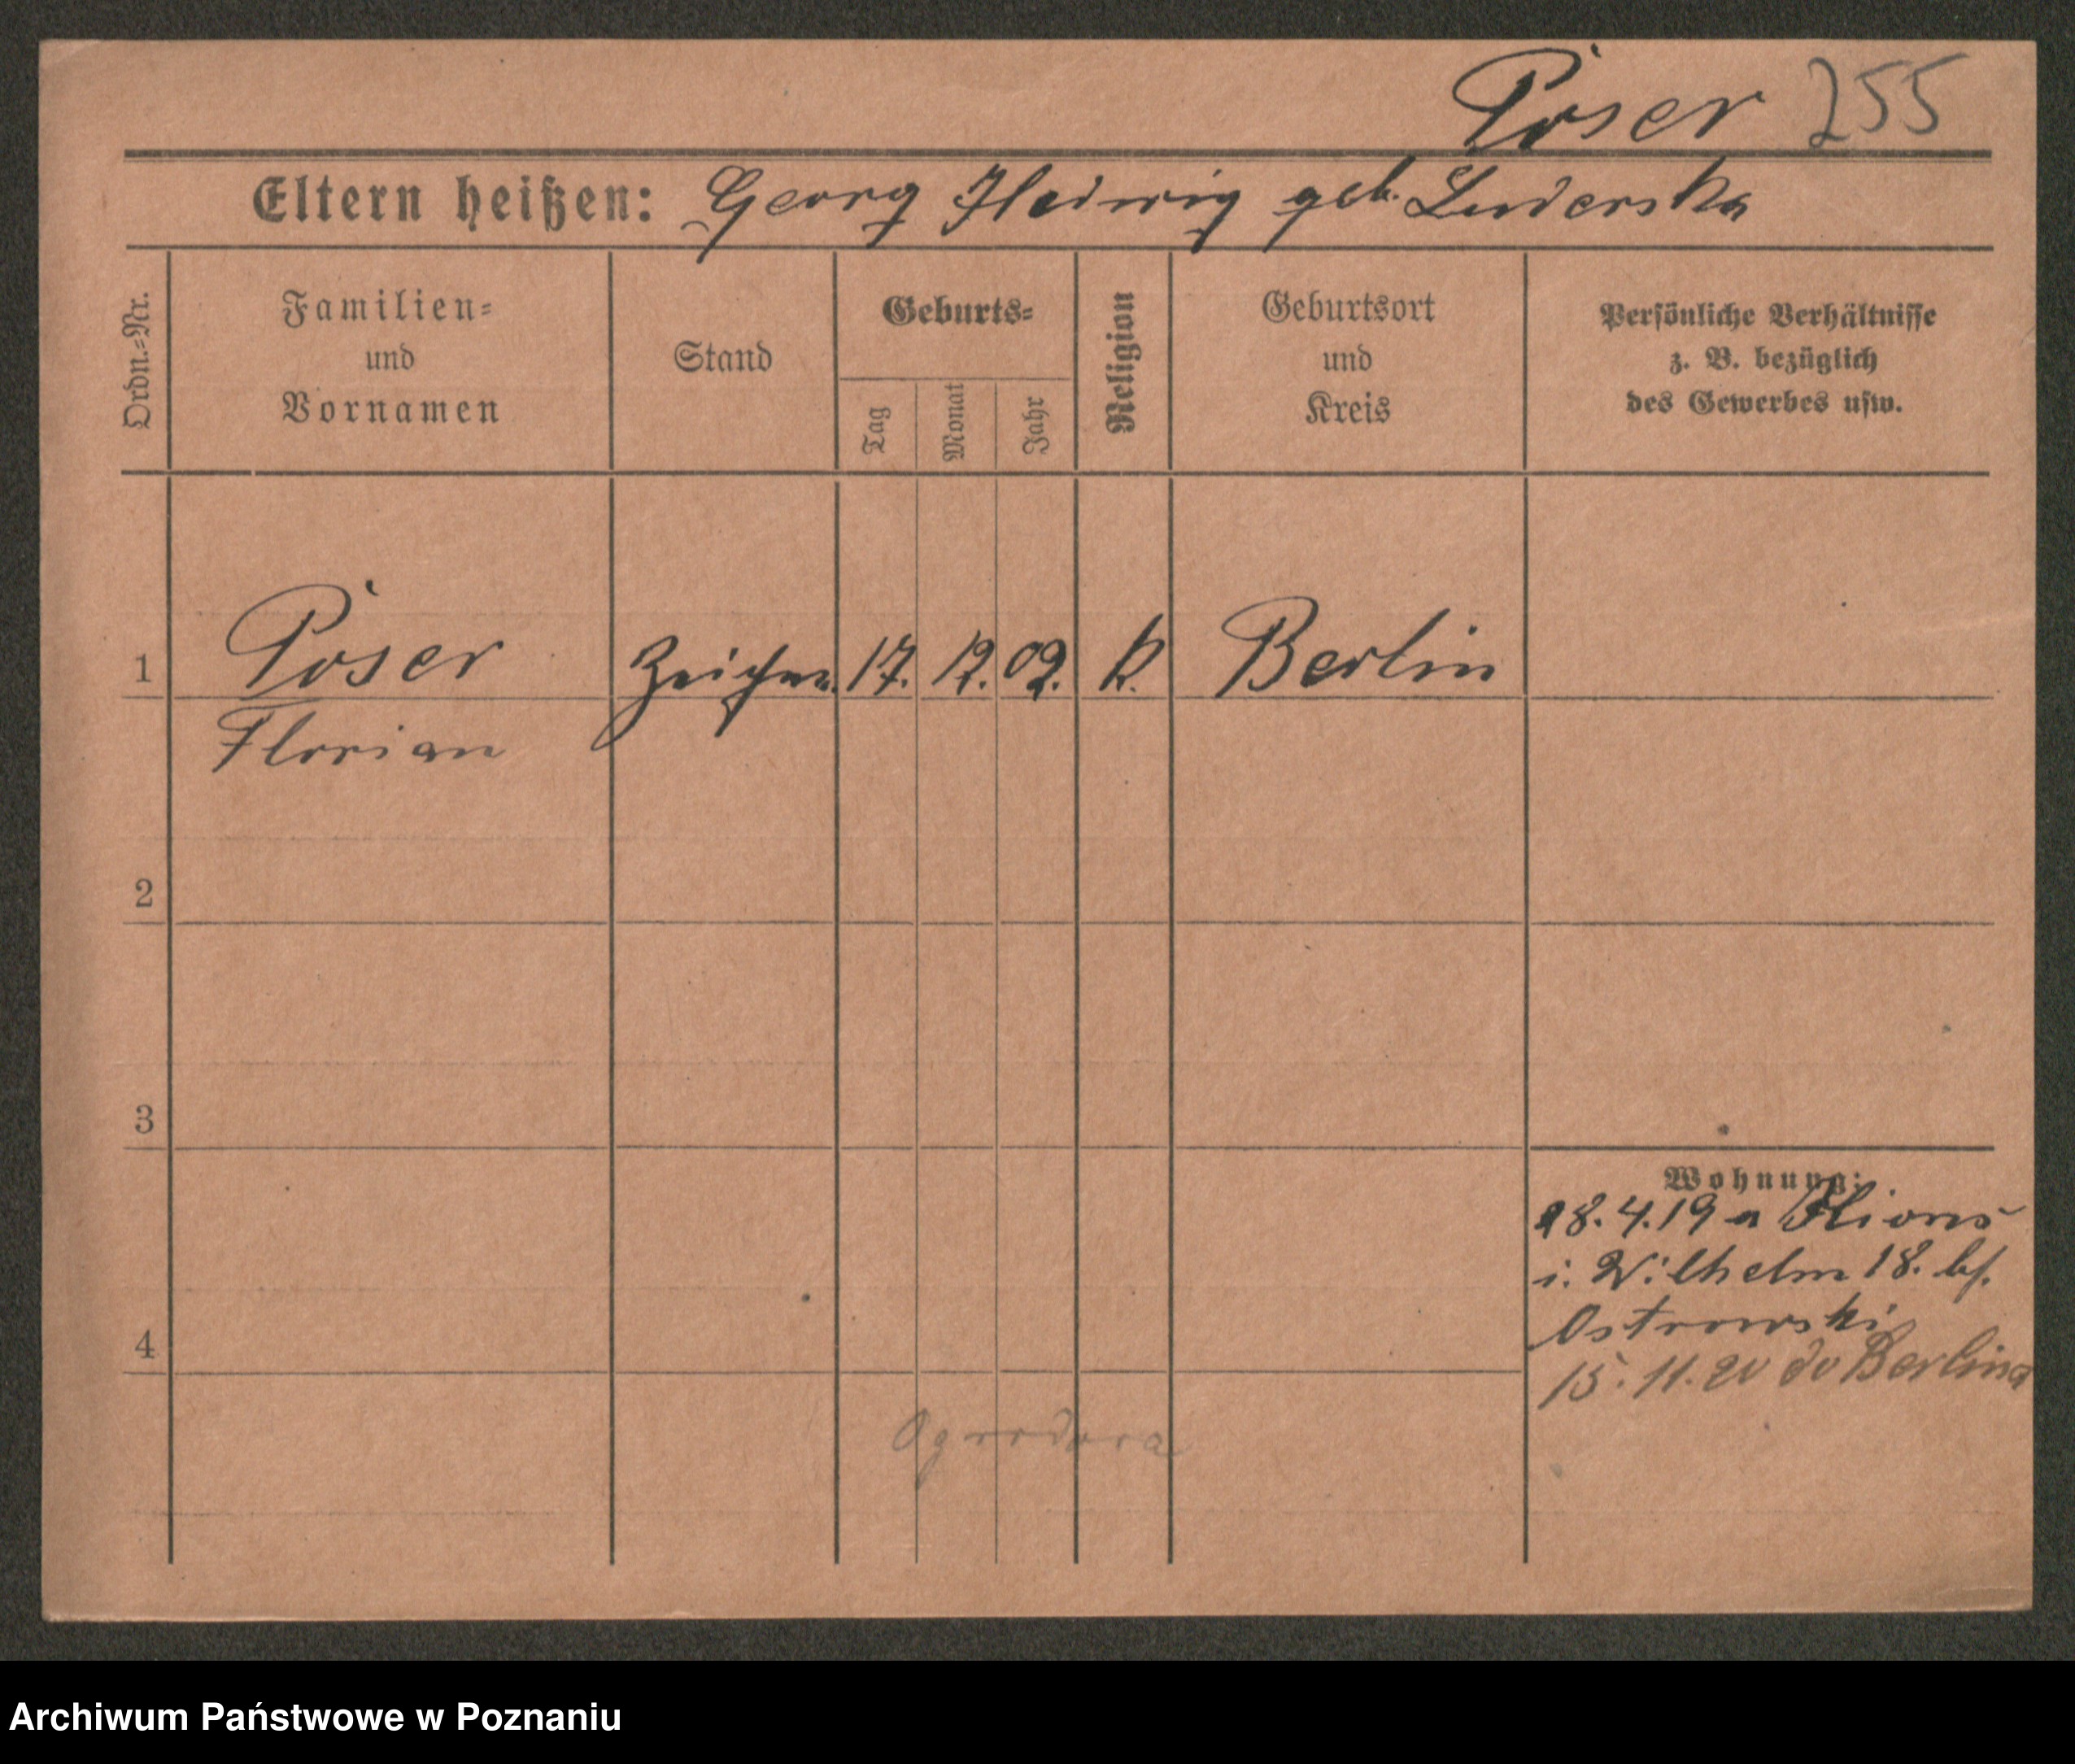 Poser 255
Eltern heißen: Georg Hedwig geb. Luderska
Ordn.-Nr.
Familien-
und
Vornamen
Stand
Geburts-
Tag
Monat
Jahr
Religion
Geburtsort
und
Kreis
Persönliche Verhältnisse
z. B. bezüglich
des Gewerbes usw.
1 Poser Zeichner. 17. 12. 02. k. Berlin
Florian
2
3
Wohnung:
28.4.19 a
i. Wilhelm 18. bf.
Ostrowski
4
15.11.20 do Berlina
Archiwum Państwowe w Poznaniu